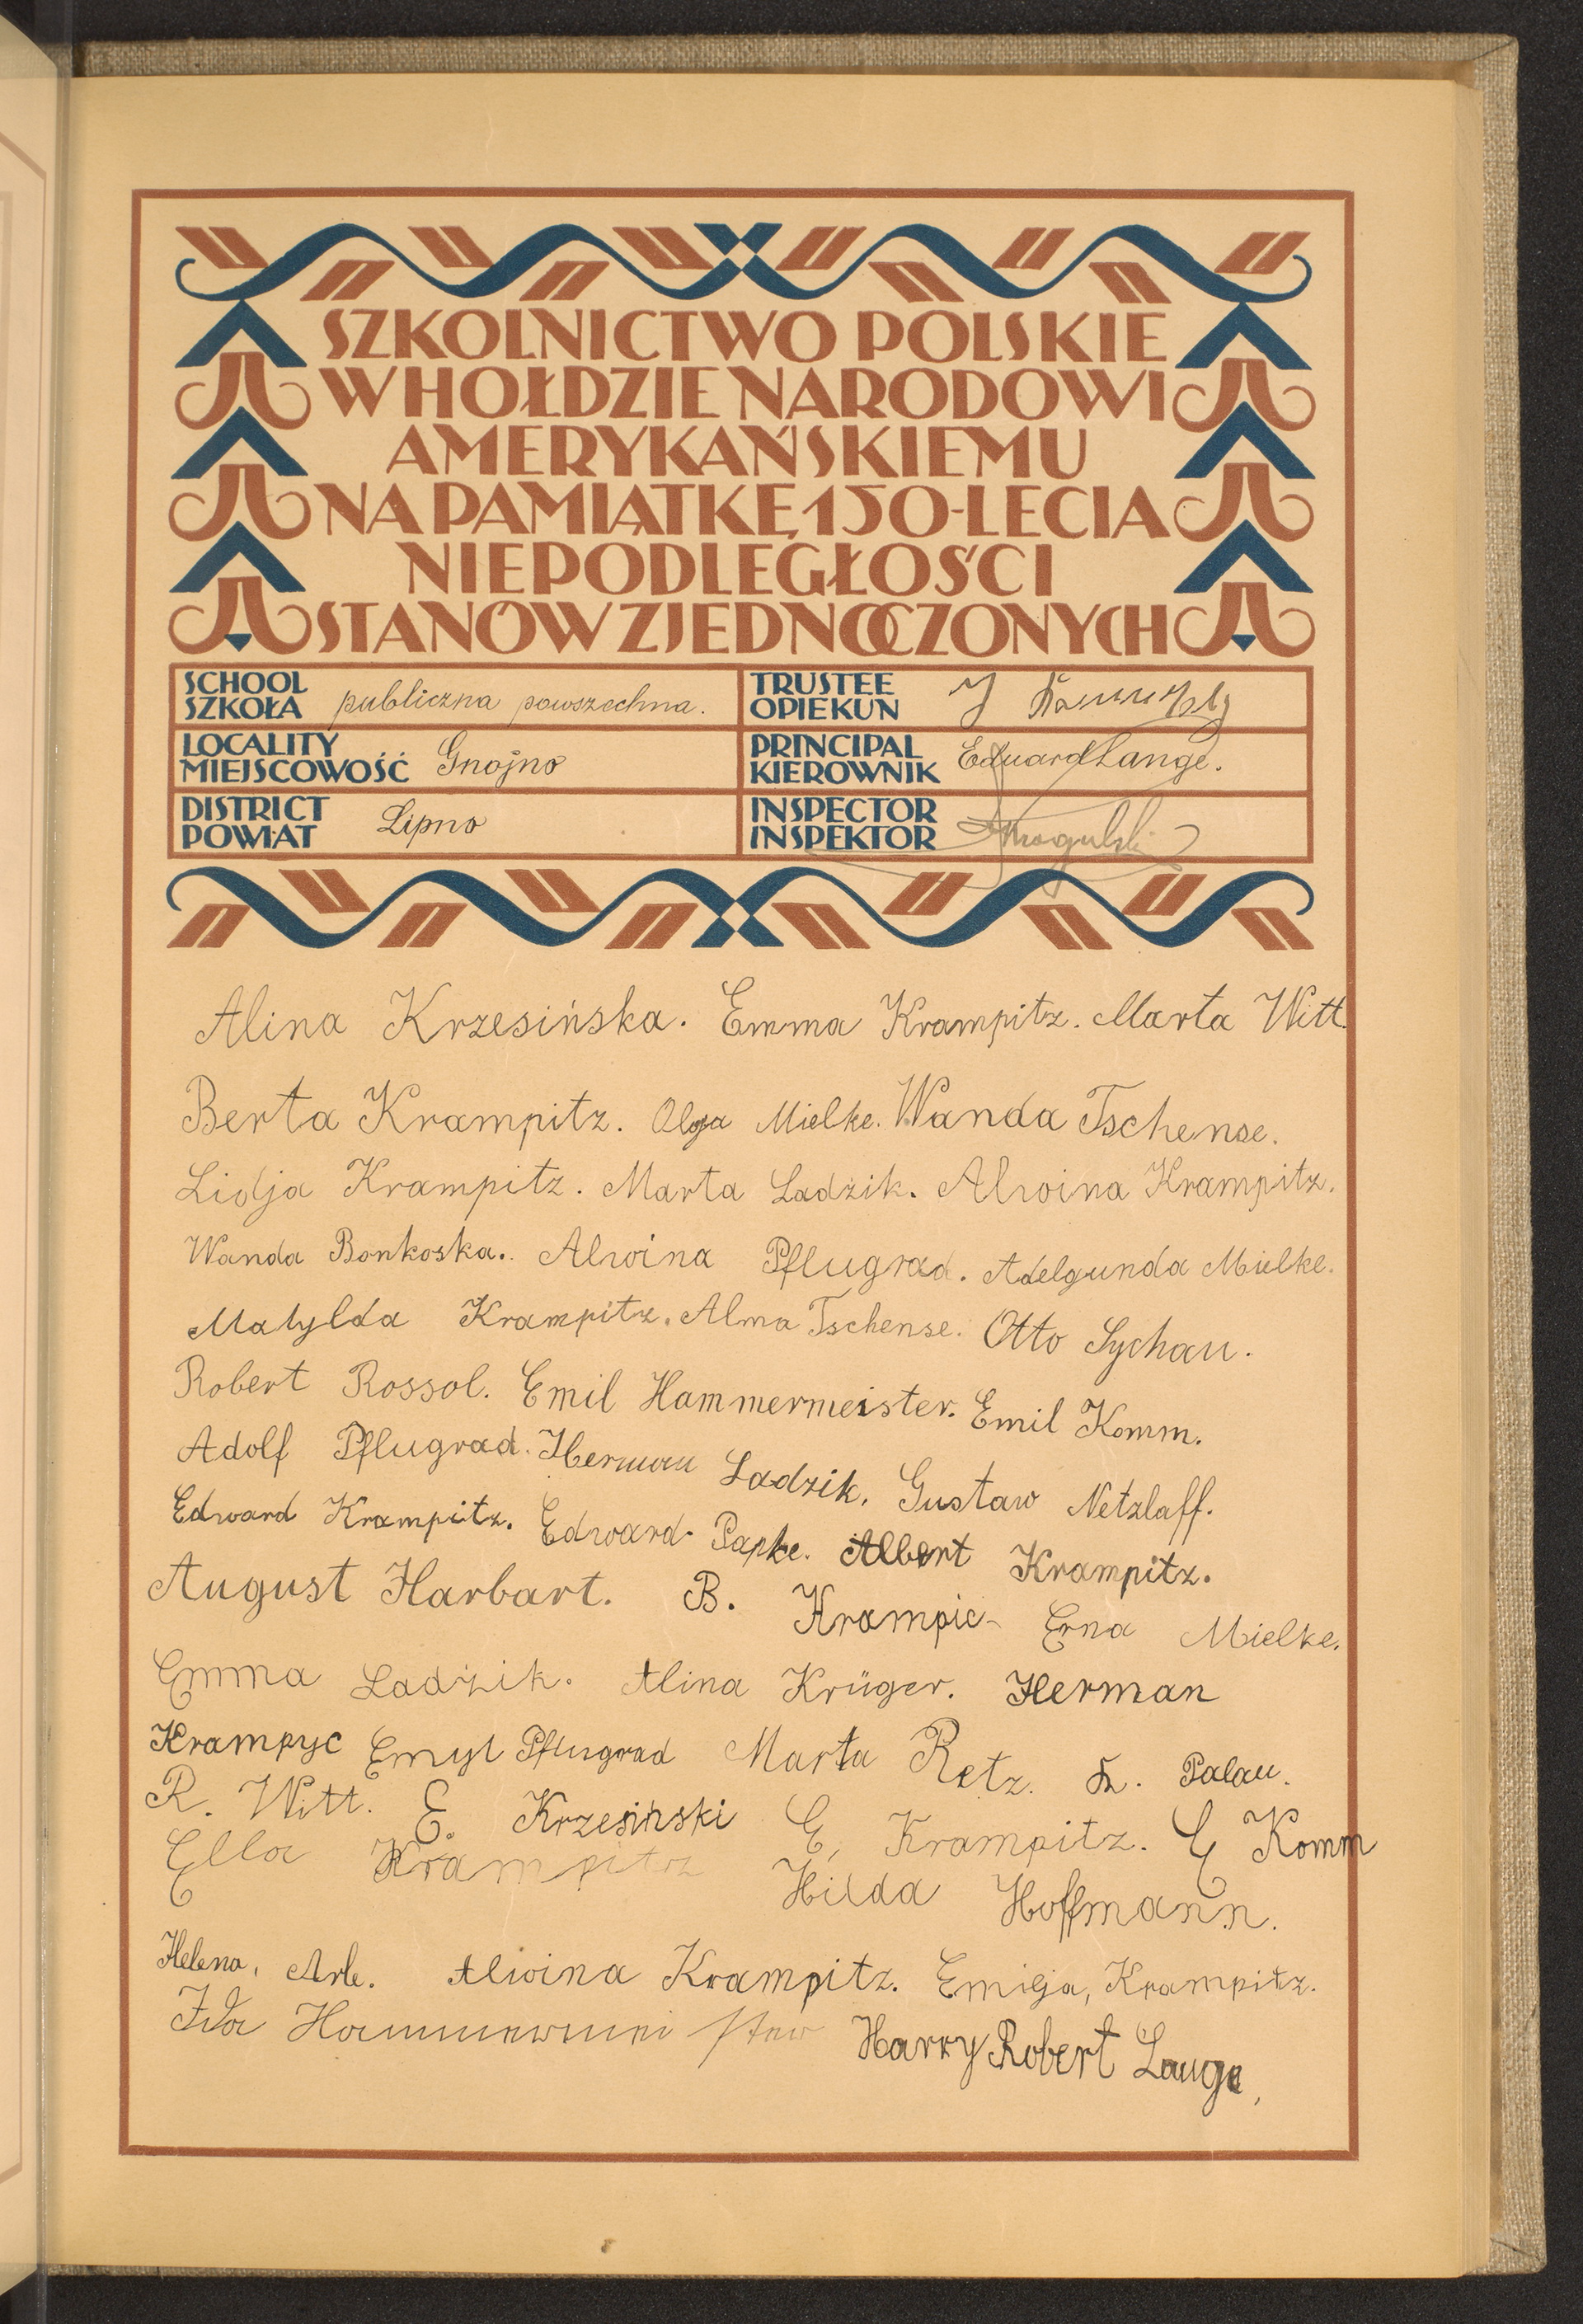 SZKOLNICTWO POLSKIE
W HOŁDZIE NARODOWI
AMERYKAŃSKIEMU
NA PAMIĄTKĘ 150-LECIA
NIEPODLEGŁOŚCI
STANÓW ZJEDNOCZONYCH
SCHOOL
SZKOŁA publiczna powszechna.
LOCALITY
MIEJSCOWOŚĆ Gnojno
DISTRICT
POWIAT Lipno
TRUSTEE
OPIEKUN
PRINCIPAL
KIEROWNIK Eduard Lange.
INSPECTOR
INSPEKTOR
Alina Krzesińska. Emma Krampitz. Marta Witt.
Berta Krampitz. Olga Mielke. Wanda Tschense.
Lidja Krampitz. Marta Ladzik. Alwina Krampitz.
Wanda Bonkoska. Alwina Pflugrad. Adelgunda Mielke.
Matylda Krampitz. Alma Tschense. Otto Sychau.
Robert Rossol. Emil Hammermeister. Emil Komm.
Adolf Pflugrad. Herman Ladzik. Gustaw Netzlaff.
Edward Krampitz. Edward Papke. Albert Krampitz.
August Harbart. B. Krampic- Erna Mielke.
Emma Ladzik. Alina Krüger. Herman
Krampyc Emyl Pflugrad Marta Retz. Palau.
R. Witt. E. Krzesiński E, Krampitz. E Komm
Ella Krampitz Hilda Hoffmann.
Helena, Arle. Alwina Krampitz. Emilja, Krampitz.
Ida Harry Robert Lange,